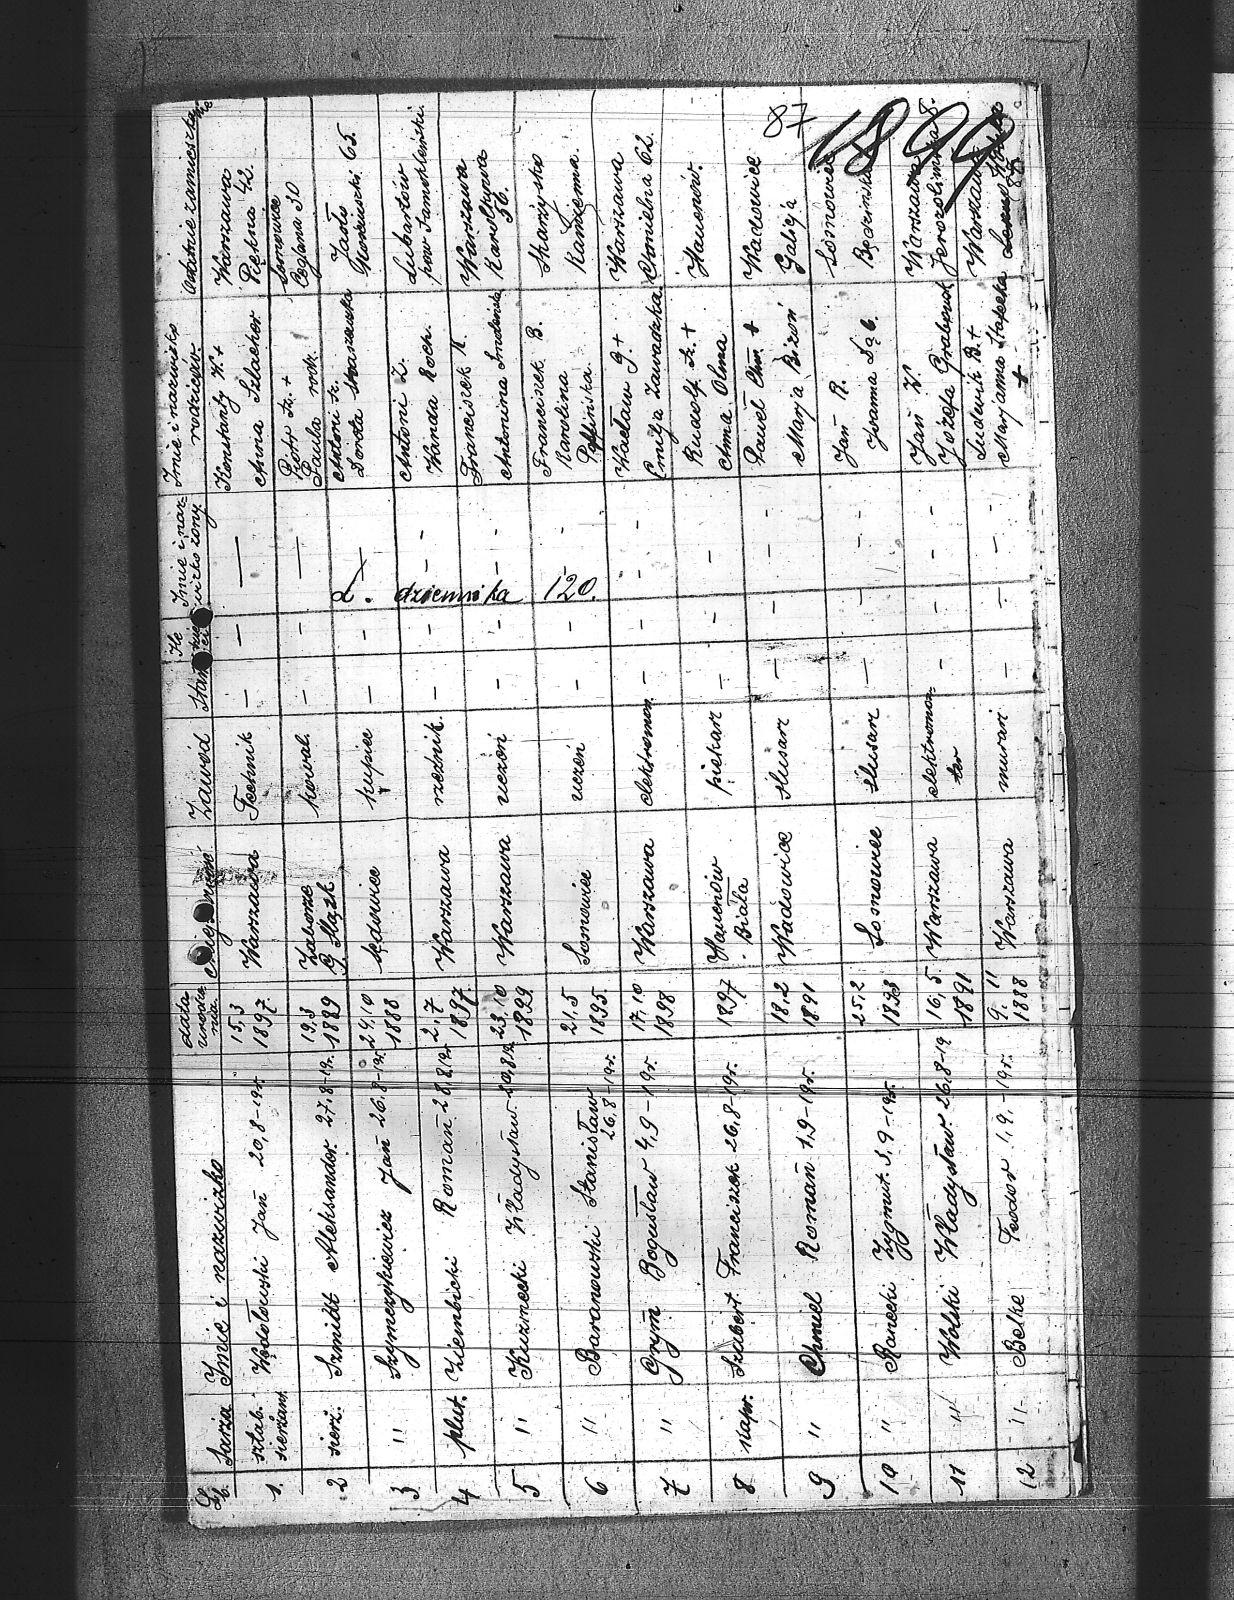 87
1899
L. dziennika 120.
L. b. Szarża Imię i nazwisko Data urodzenia miejscowość Zawód Stan Ile dzieci Imię i nazwisko żony Imię i nazwisko rodziców ostatnie zamieszkanie
1. sztab. sierżant Wesołowski Jan 20,8-19r. 15,3 1897 Warszawa Technik — — — Konstanty W.+ Anna Szlacher Warszawa Piękna 42.
2 sierż. Szmidt Aleksander 27,8-19r. 19,3 1889 Zaborze G. Śląsk kowal. — — — Piotr Sz.+ Paula Sosnowice Ceglana 30
3. " Szymczykiewicz Jan 26,8-19r. 24,10 1888 kupiec — — — Antoni Sz. Dorota 65.
4 plut. Ziembicki Roman 28,8,19r. 2,7 1897. Warszawa rzeźnik. — — — Antoni Z. Wanda Koch. Lubartów pow.
5 " Kuźnecki Władysław 23,10 1899 Warszawa uczeń — — — Franciszek K. Antonina Smoleńska Warszawa Karolkowa 56.
6 " Baranowski Stanisław 26,8-19r. 21,5 1895. Sosnowiec uczeń — — — Franciszek B. Karolina Skarżysko Kamienna.
7 " Grym Bogusław 4,9-19r. 17,10 1898 Warszawa elektromon. — — — Wacław G.+ Emilja Zawadzka. Warszawa Chmielna 62.
8 kapr. Szubert Franciszek 26,8-19r. 1897 Biała piekarz — — — Rudolf Sz.+ Anna Olma
9 " Chmiel Roman 1,9-19r. 18,2 1891 Wadowice ślusarz — — — Paweł Chm.+ Marja Bizoń Wadowice Galicja
10 " Ranecki Zygmut. 3,9-19r. 25,2 Sosnowiec ślusarz — — — Jan R. Joanna Sosnowiec
11 " Wolski Władysław. 26,8-19 16,5 1891 Warszawa elektromonter — — — Jan W. Józefa Grabowsk Warszawa Jerozolimska 8.
12 " Belke Teodor 1,9,-19r. 9,11 1888 Warszawa murarz — — — Ludwik B.+ Marjanna + Warszawa